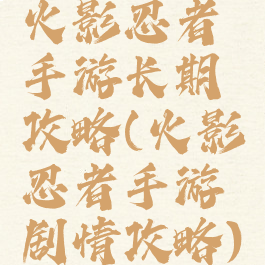 火影忍者
手游长期
攻略(火影
忍者手游
剧情攻略)